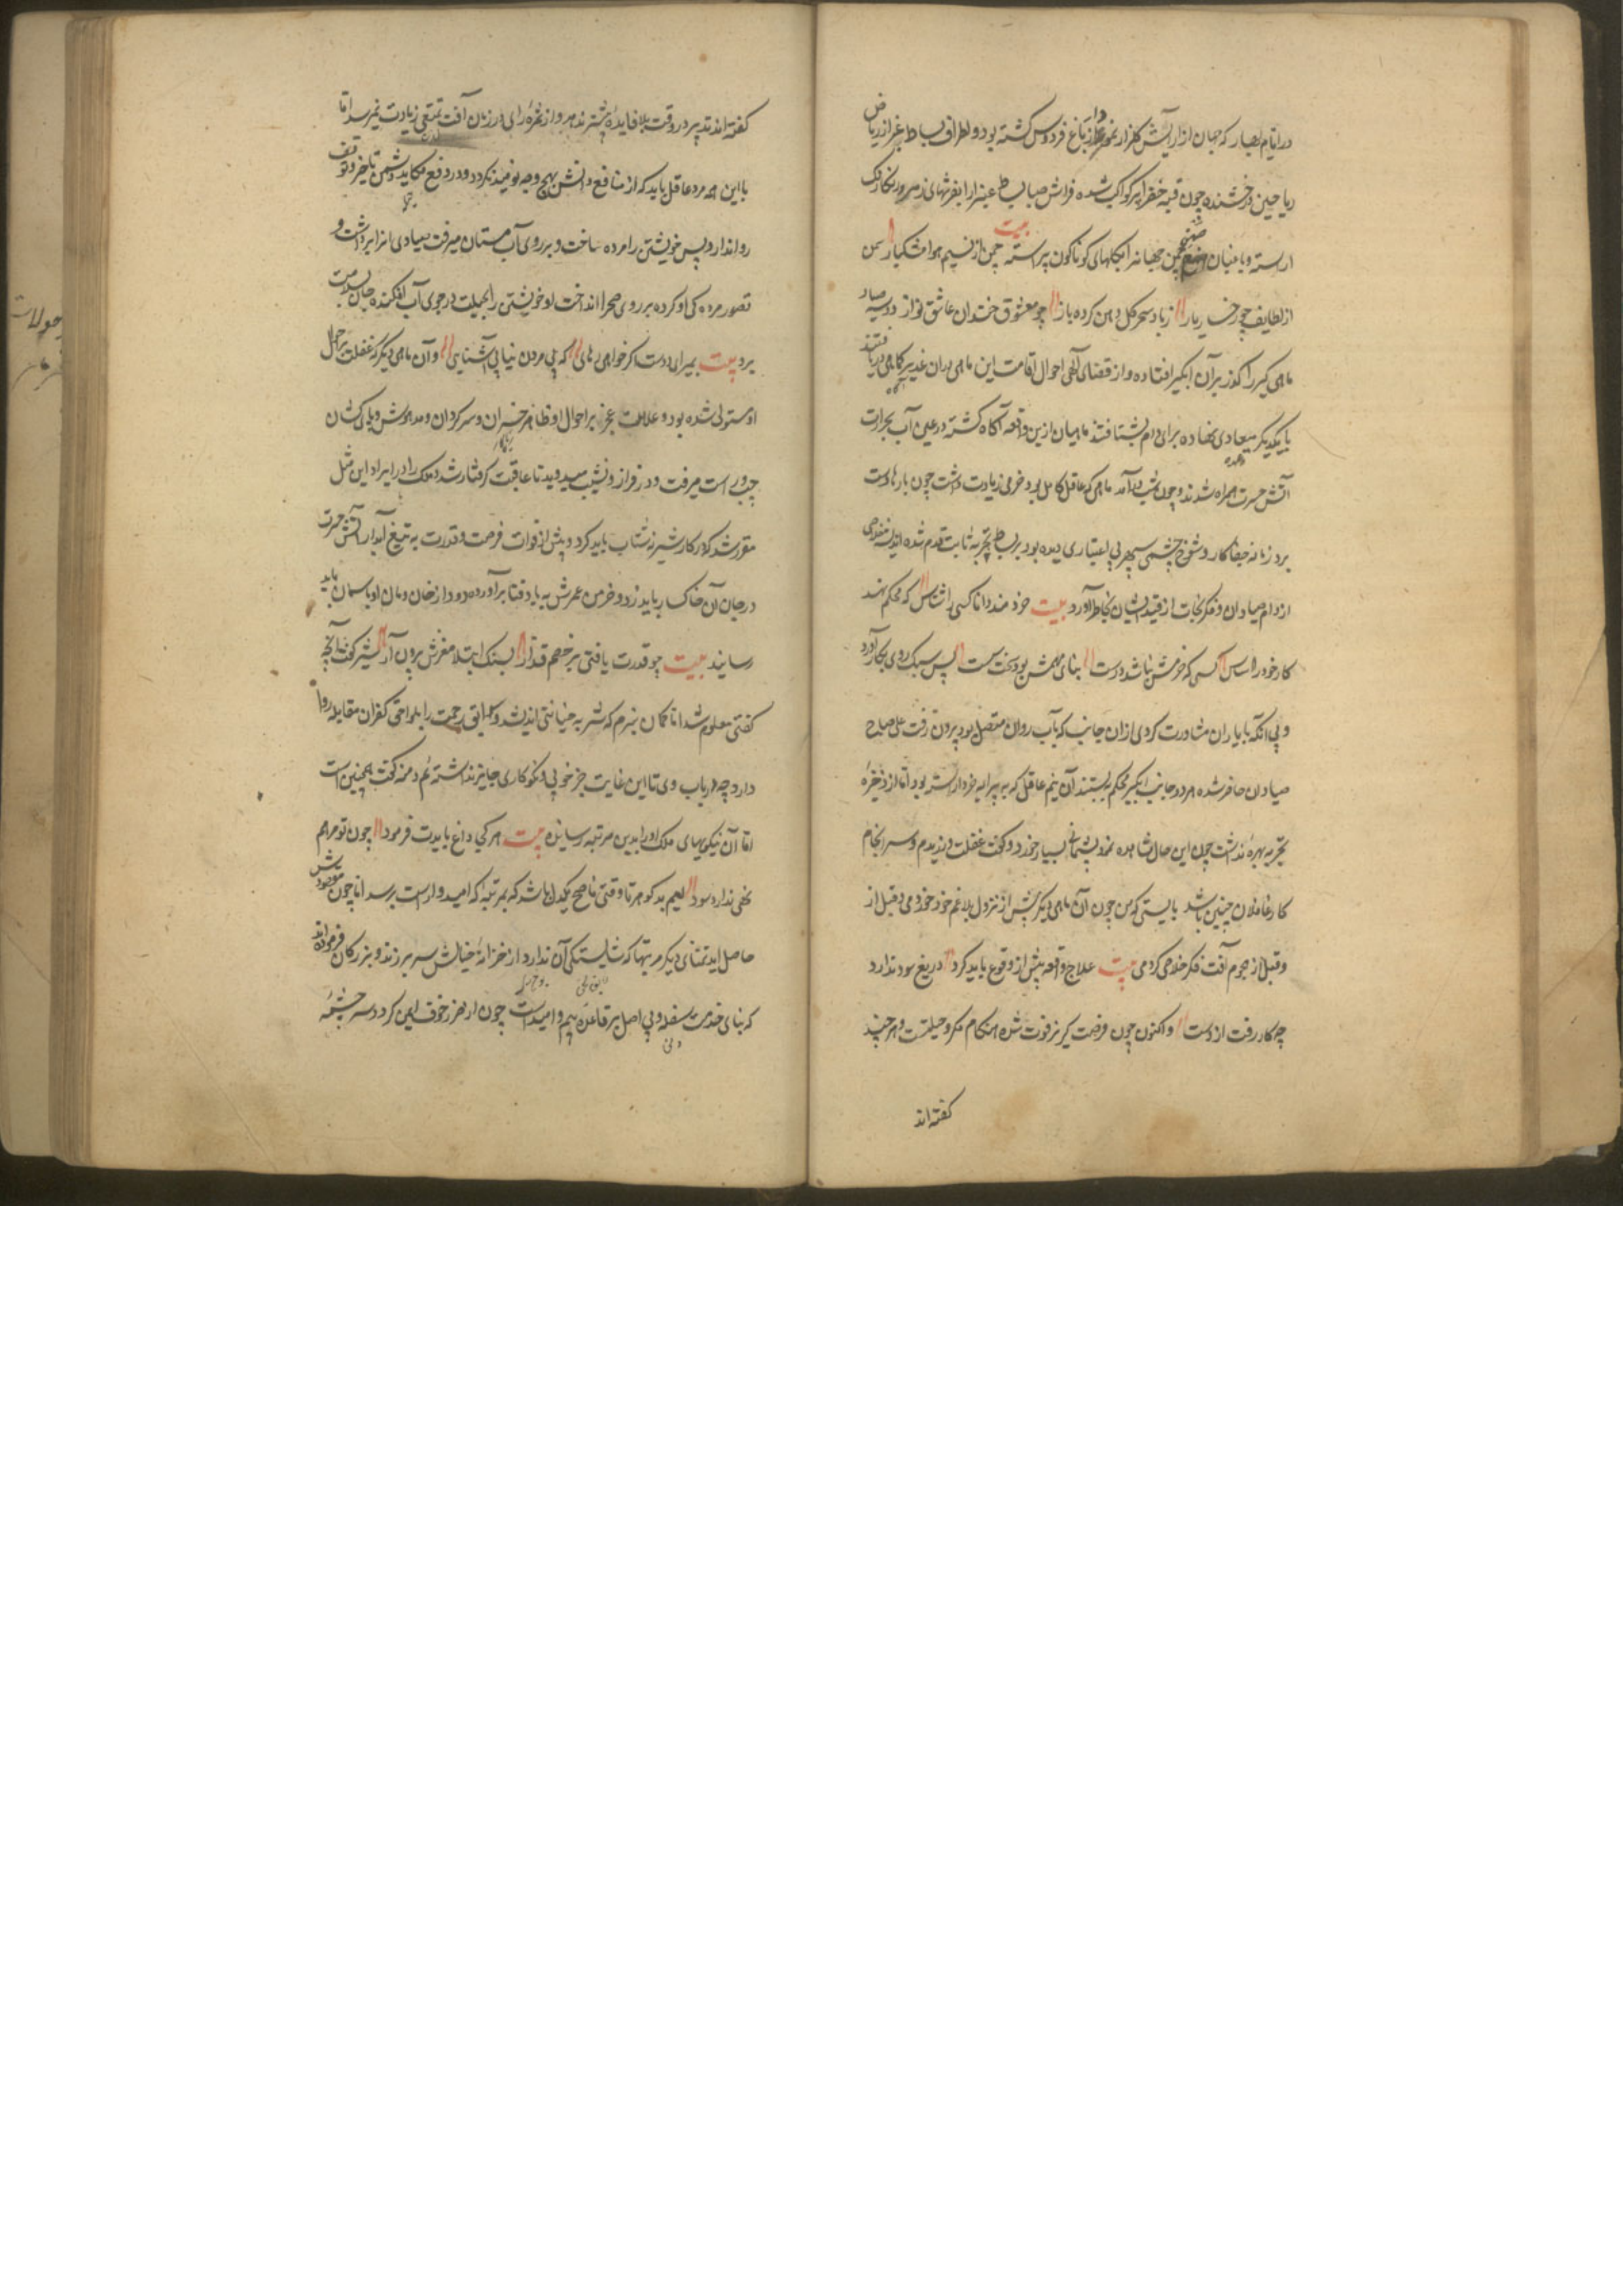 در ایام بهار که جهان از آرایش گلزار نمودار از باغ فردوس گشته بود و اطراف بساط غبرا از ریاض
ریاحین درخشنده چون قبه خضرا پر کواکب شده فراش صبا بساط غبرا را بفرشهای زمرد رنگارنگ
آراسته و باغبان صنع چمن جهانرا بگلهای گوناگون پیراسته بیت چمن از نسیم هوا مشکبار سمن
از لطایف چو رخسار یار ز باد سحر گل دهن کرده باز چو معشوق خندان عاشق نواز دو سه صیاد
ماهی گیر را گذر بر آن آبگیر افتاده و از قضای آلهی احوال اقامت این ماهی در ان غدیر کماهی دریافتند
با یکدیگر میعادی نهاده برای دام بشتافتند ماهیان ازین واقعه آگاه گشته در عین آب بحرارت
آتش حسرت همراه شدند و چون شب درآمد ماهی که عاقل کامل بود و خرمی زیادت داشت چون بارها دست
برد زمانه جفاکار و شوخ چشمی سپهر بی اعتباری دیده بود بر بساط تجربه ثابت قدم شده اندیشه خلاصی
از دام صیادان و فکر نجات از قید ایشان بخاطر آورد بیت خردمند دانا کسی را شناس که محکم نهد
کار خود را اساس کسی که خرمش نباشد درست بنای مهمش بود سخت سست پس سبک روی بکار آورد
و بی آنکه با یاران مشاورت کردی ازان جانب که بآب روان متصل بود بیرون رفت علی صباح
صیادان حاضر شده هر دو جانب آبگیر محکم به بستند آن نیم عاقل که به پیرایه خرد آراسته بود اما از ذخیره
تجربه بهره نداشت چون این حال مشاهده نمود پشیمانی بسیار خورد و گفت غفلت ورزیدم و سرانجام
کار غافلان چنین باشد بایستی که من چون آن ماهی دیگر پیش از نزول بلا غم خود خوردمی و قبل از
و قبل از هجوم آفت فکر خلاص کردمی بیت علاج واقعه پیش از وقوع باید کرد دریغ سود ندارد
چو کار رفت از دست و اکنون چون فرصت گریز فوت شده هنگام مکر و حیلتست و هر چند
گفته اند
گفته اند تدبیر در وقت بلا فایده بیشتر ندهد و از ثمره رای در زمان آفت تمتعی زیادت نمیرسد اما
با این همه مرد عاقل باید که از منافع دانش بهیچ وجه نومید نگردد و در دفع مکاید دشمن تاخیر و توقف
روا ندارد پس خویشتن را مرده ساخت و بر روی آب مستان میرفت صیادی انرا برداشت و
تصور مردگی او کرده بر روی صحرا انداخت او خویشتن را بحیلت در جوی آب افکنده جان بسلامت
برد بیت بمیر ای دوست اگر خواهی رهائی که بی مردن نیابی آشنایی و آن ماهی دیگر که غفلت بر احوال
او مستولی شده بود و علامت عجز بر احوال او ظاهر حیران و سرگردان و مدهوش و پای کشان
چپ و راست میرفت و در فراز و نشیب میدوید تا عاقبت گرفتار شد و ملک را در ایراد این مثل
مقرر شد که در کار شنزبه شتاب باید کرد و پیش از فوات فرصت و قدرت به تیغ آبدار آتش حسرت
در جان آن خاکسار باید زد و خرمن عمرش به باد فنا برآورده دود از خان و مان او باسمان باید
رسانید بیت چو قدرت یافتی بر خصم غدار بسنگ ابتلا مغزش برون آر شیر گفت آنچه
گفتی معلوم شد اما گمان نبرم که شنزبه خیانتی اندیشد و سوابق رحمت را بلواحق کفران مقابله روا
دارد چه در باب وی تا این غایت جز خوبی و نکوکاری جایز نداشته ام دمنه گفت همچنین است
اما آن نیکویهای ملک او را بدین مرتبه رسانیده بیت هر کجا داغ بایدت فرمود چون تو مرهم
نهی ندارد سود لئیم بد گوهر تا وقتی ناصح یکدل باشد که بمرتبه که امیدوارست برسد اما چون مقصودش
حاصل اید تمنای دیگر مرتبها که شایستگی آن ندارد از خزانه خیالش سر برزند و بزرگان فرموده اند
که بنای خدمت سفله و بی اصل بر قاعده بیم و امیداست چون از ضرر خوف ایمن گردد سرچشمه